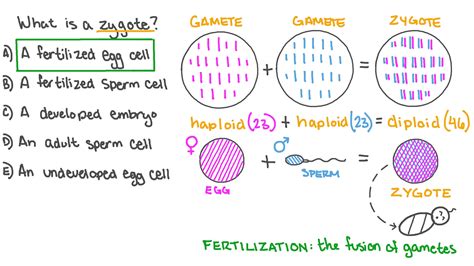 What is a zygote?
A) A fertilized egg cell
B) A fertilized sperm cell
C) A developed embryo
D) An adult sperm cell
E) An undeveloped egg cell
GAMETE GAMETE ZYGOTE
+ =
haploid (23) + haploid (23) = diploid (46)
♀ + ♂ =
EGG SPERM ZYGOTE
FERTILIZATION: the fusion of gametes